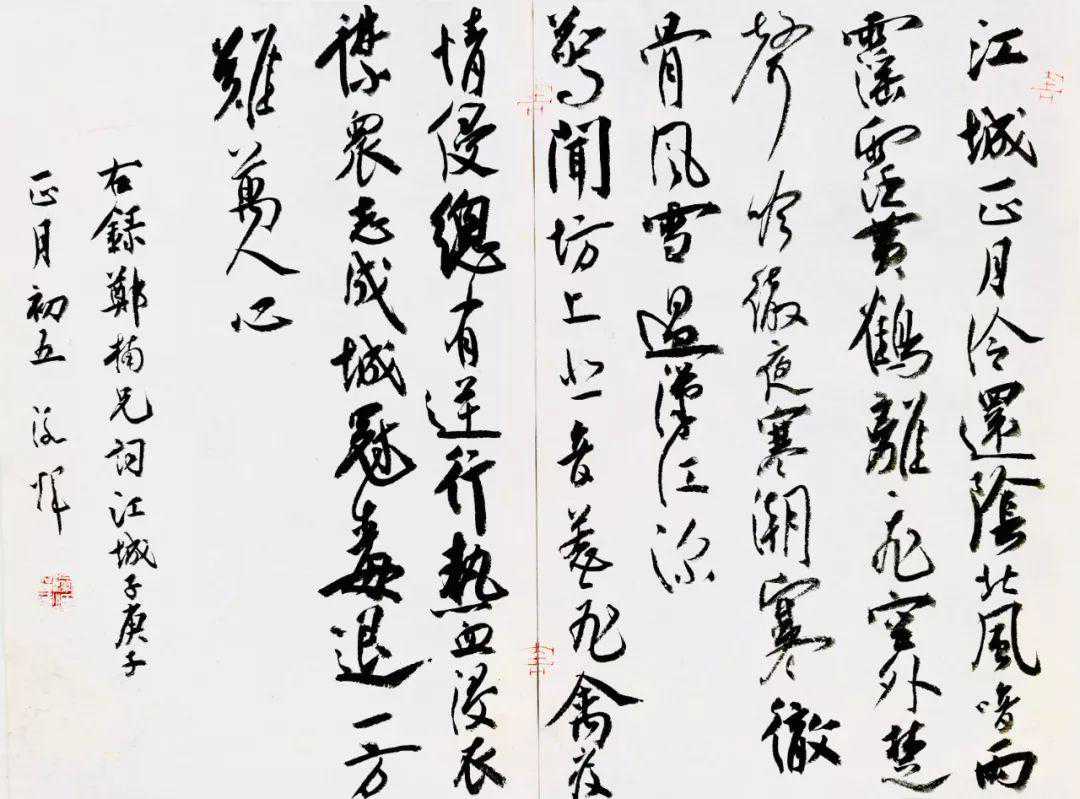 江城正月冷還陰北風喑雨
霪霪黃鶴離飛空外楚
聲吟徹夜寒潮寒徹
骨風雪過漢江深
驚聞坊上悲音飛禽疫
情侵總有逆行熱血浸衣
襟眾志成城冠毒退一方
難萬人心
右錄鄭楠兄詞江城子庚子
正月初五